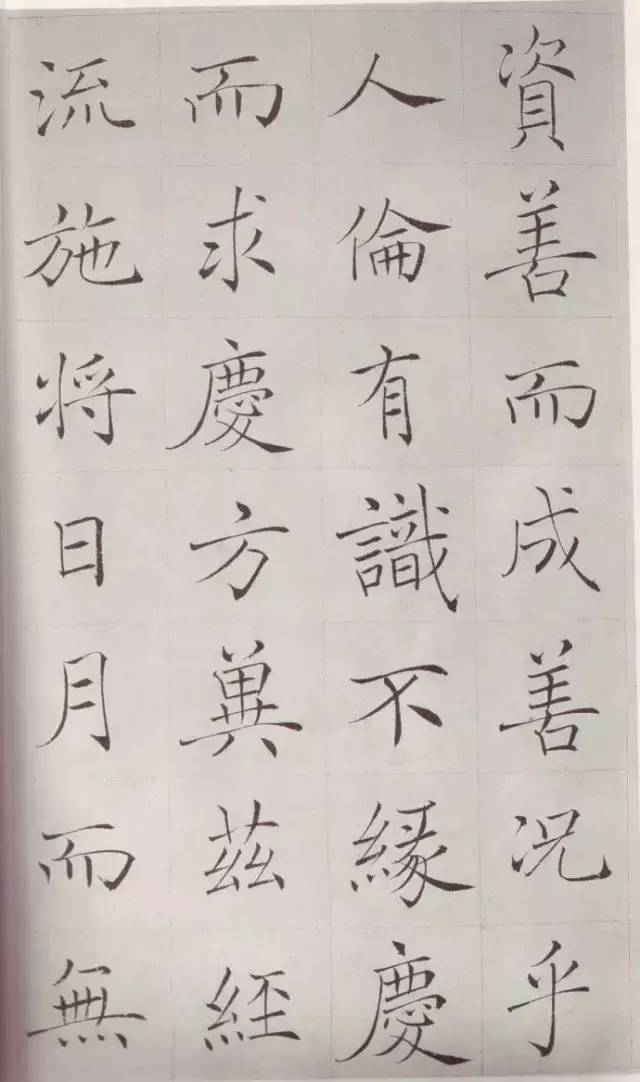 資善而成善况乎
人倫有識不緣慶
而求慶方兾茲經
流施将日月而無